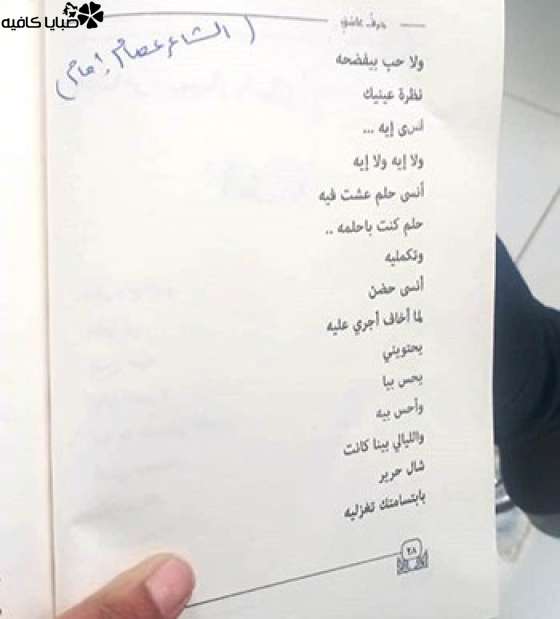 صبايا كافيه
حرف عاشق
(الشاعر عصام إمام)
ولا حب بيفضحه
نظرة عينيك
أنسى إيه ...
ولا إيه ولا إيه
أنسى حلم عشت فيه
حلم كنت باحلمه ..
وتكمليه
أنسى حضن
لما أخاف أجري عليه
يحتويني
يحس بيا
وأحس بيه
والليالي بينا كانت
شال حرير
بابتسامتك تغزليه
٢٨